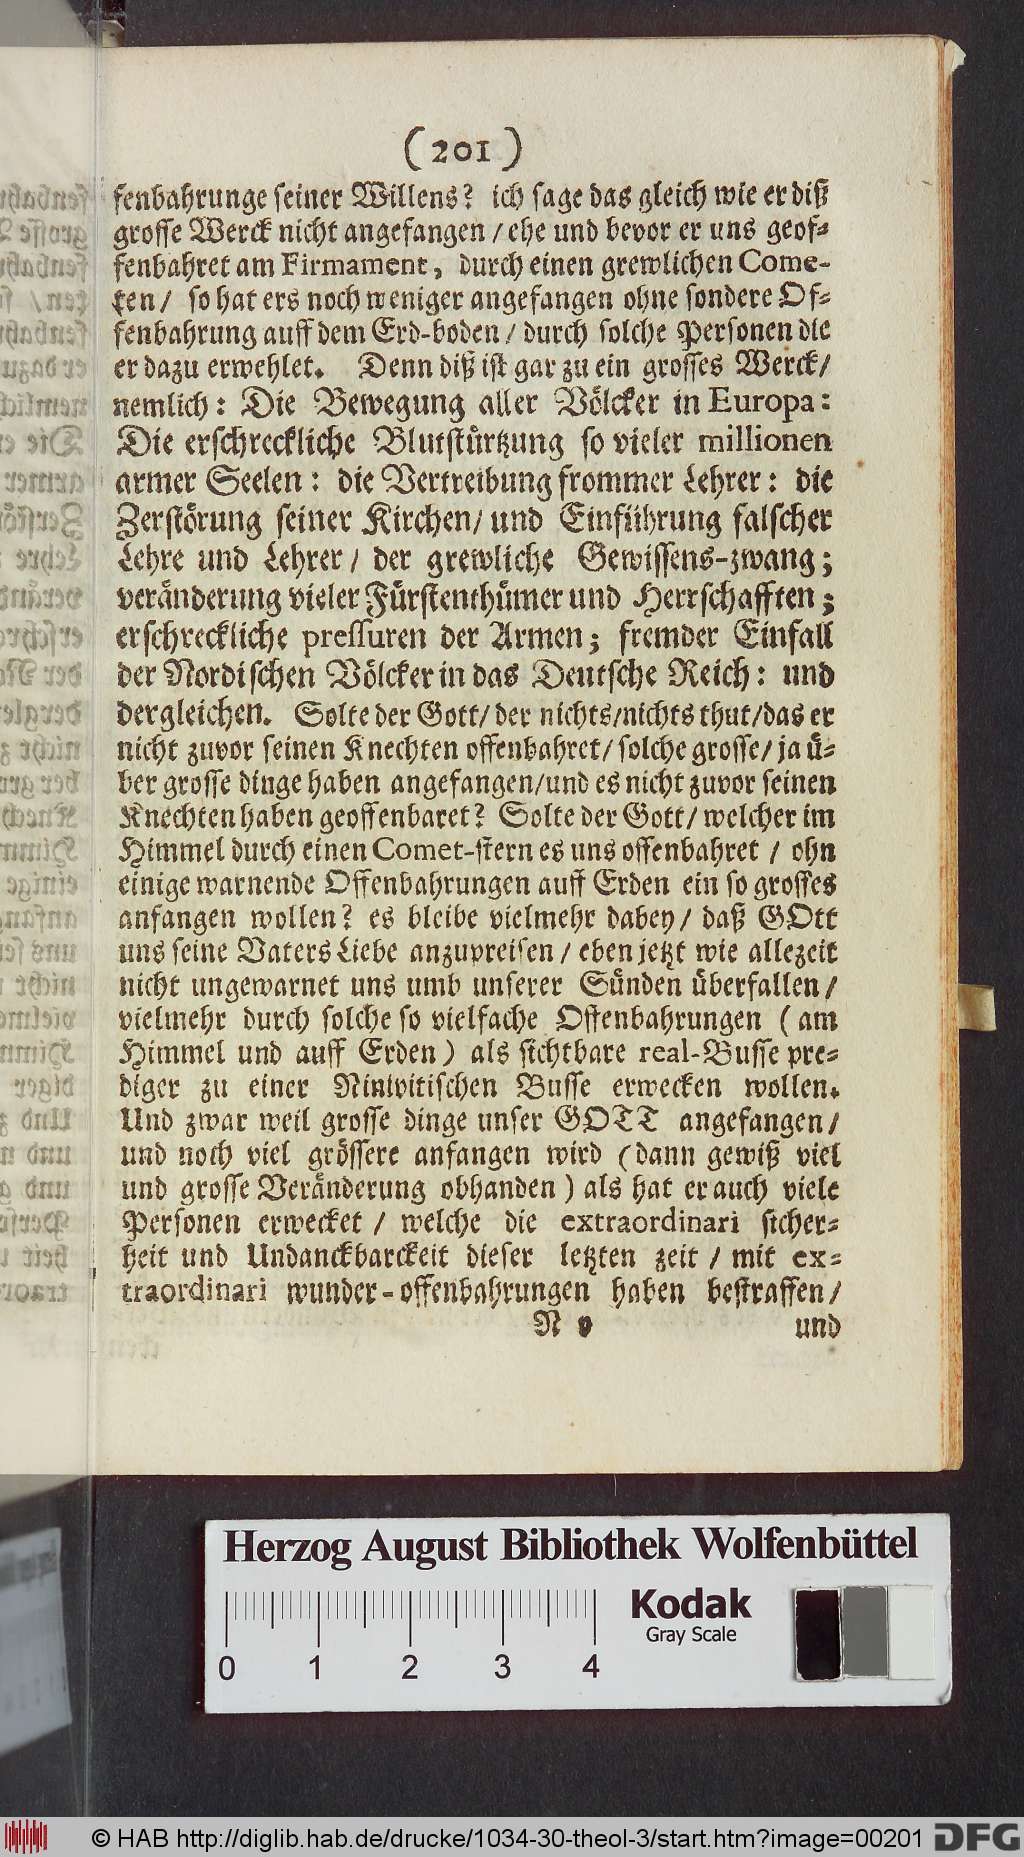 ( 201 )
fenbahrunge seiner Willens? ich sage das gleich wie er diß
grosse Werck nicht angefangen / ehe und bevor er uns geof-
fenbahret am Firmament, durch einen grewlichen Come-
ten / so hat ers noch weniger angefangen ohne sondere Of-
fenbahrung auff dem Erd-boden / durch solche Personen die
er dazu erwehlet. Denn diß ist gar zu ein grosses Werck /
nemlich: Die Bewegung aller Völcker in Europa:
Die erschreckliche Blutstürtzung so vieler millionen
armer Seelen: die Vertreibung frommer Lehrer: die
Zerstörung seiner Kirchen / und Einführung falscher
Lehre und Lehrer / der grewliche Gewissens-zwang;
veränderung vieler Fürstenthümer und Herrschafften;
erschreckliche pressuren der Armen; fremder Einfall
der Nordischen Völcker in das Deutsche Reich: und
dergleichen. Solte der Gott / der nichts / nichts thut / das er
nicht zuvor seinen Knechten offenbahret / solche grosse / ja ü-
ber grosse dinge haben angefangen / und es nicht zuvor seinen
Knechten haben geoffenbaret? Solte der Gott / welcher im
Himmel durch einen Comet-stern es uns offenbahret / ohn
einige warnende Offenbahrungen auff Erden ein so grosses
anfangen wollen? es bleibe vielmehr dabey / daß GOtt
uns seine Vaters Liebe anzupreisen / eben jetzt wie allezeit
nicht ungewarnet uns umb unserer Sünden überfallen /
vielmehr durch solche so vielfache Offenbahrungen ( am
Himmel und auff Erden ) als sichtbare real-Busse pre-
diger zu einer Ninivitischen Busse erwecken wollen.
Und zwar weil grosse dinge unser GOTT angefangen /
und noch viel grössere anfangen wird ( dann gewiß viel
und grosse Veränderung obhanden ) als hat er auch viele
Personen erwecket / welche die extraordinari sicher-
heit und Undanckbarckeit dieser letzten zeit / mit ex-
traordinari wunder-offenbahrungen haben bestraffen /
N v und
Herzog August Bibliothek Wolfenbüttel
Kodak
Gray Scale
0 1 2 3 4
© HAB http://diglib.hab.de/drucke/1034-30-theol-3/start.htm?image=00201 DFG